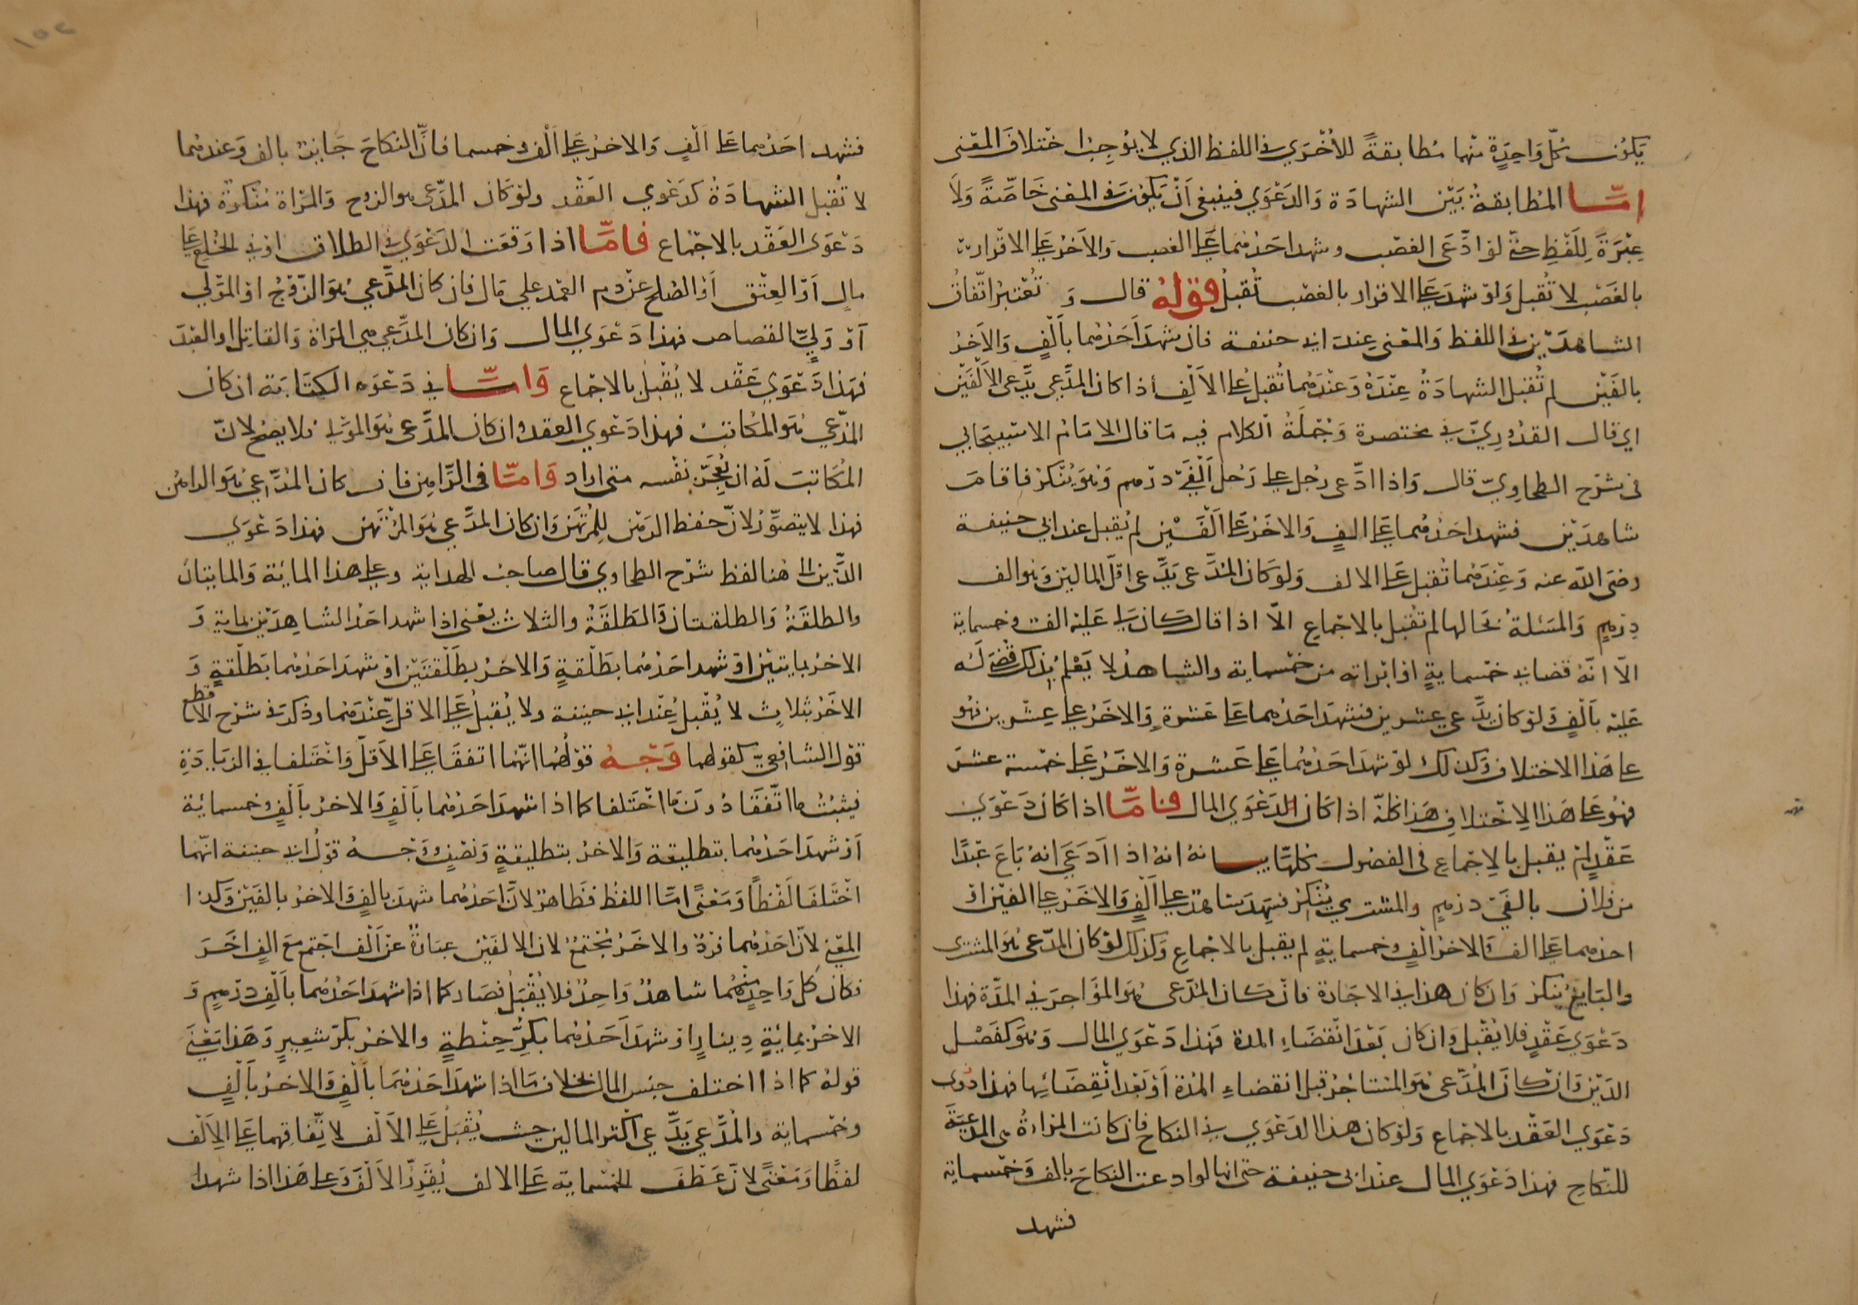 يكون كل واحدة منهما مطابقة للأخرى في اللفظ الذي لا يوجب اختلاف المعنى
امّا المطابقة بين الشهادة والدعوى فينبغي أن يكون في المعنى خاصّة ولا
عبرة للفظ حتى لو ادّعى الغصب وشهد احدهما على الغصب والآخر على الاقرار
بالغصب لا تقبل ولو شهد على الاقرار بالغصب تقبل قوله قال وتعتبر اتّفاق
الشاهدين في اللفظ والمعنى عند ابي حنيفة فان شهد أحدهما بألف والآخر
بالفين لم تقبل الشهادة عنده وعندهما تقبل على الألف إذا كان المدّعي يدّعي الألفين
اي قال القدوريّ في مختصره وجملة الكلام فيه ما قال الامام الاسبيجابي
في شرح الطحاويّ قال واذا ادّعى رجل على رجل ألفي درهم وهو ينكر فاقامـ
شاهدين فشهد احدهما على الفٍ والاخر على الفين لم يقبل عند ابي حنيفة
رضي الله عنه وعندهما تقبل على الالف ولو كان المدّعي يدّعي اقل المالين وهو الف
درهم والمسئلة بحالها لم تقبل بالاجماع الّا اذا قال كان لي عليه الف وخمسماية
الّا انّه قضاني خمسماية او ابراته من خمسماية والشاهد لا يعلم بذلك قضي له
عليه بألف ولو كان يدّعي عشرين فشهد احدهما على عشرة والآخر على عشرين فهو
على هذا الاختلاف وكذلك لو شهد احدهما على عشرة والآخر على خمسة عشر
فهو على هذا الاختلاف هذا كلّه اذا كان الدعوى المال فامّا اذا كان دعوى
عقد لم يقبل بالاجماع في الفصول كلها بيانه انه اذا ادعى انه باع عبدًا
من فلان بالفي درهم والمشتري ينكر فشهد شاهد على ألف والاخر على الفين او
احدهما على الف والاخر الف وخمسماية لم يقبل بالاجماع وكذلك لو كان المدّعي هو المشتري
والبايع ينكر وان كان هذا في الاجارة فان كان المدّعي هو المؤاجر في المدّة فهذا
دعوى عقد فلا يقبل وان كان بعد انقضاء المدة فهذا دعوى المال وهو كفصل
الدين وان كان المدّعي هو المستاجر قبل انقضاء المدة أو بعد انقضائها فهذا
دعوى العقد بالاجماع ولو كان هذا الدعوى في النكاح فان كانت المراة هي المدعية
للنكاح فهذا دعوى المال عند ابي حنيفة حتى انها لو ادعت النكاح بالف وخمسماية
فشهد
فشهد احدهما على ألف والاخر على ألف وخمسما فانّ النكاح جايز بالف وعندهما
لا تقبل الشهادة كدعوى العقد ولو كان المدّعي هو الزوج والمراة منكرة فهذا
دعوى العقد بالاجماع فامّا اذا وقعت الدعوى في الطلاق او في الخلع على
مال أو العتق أو الصلح عن دم العمد على مال فان كان المدّعي هو الزوج او المولى
أو وليّ القصاص فهذا دعوى المال وان كان المدّعي هي المراة والقاتل او العبد
فهذا دعوى عقد لا يقبل بالاجماع وامّا في دعوى الكتابة ان كان
المدّعي هو المكاتب فهذا دعوى العقد وان كان المدّعي هو المولى فلا يصح لانّ
المكاتب له ان يعجّز نفسه متى اراد وامّا في الرّهن فان كان المدّعي هو الراهن
فهذا لا يتصوّر لانّ حفظ الرهن للمرتهن وان كان المدّعي هو المرتهن فهذا دعوى
الدّين الى هنا لفظ شرح الطحاوي قال صاحب الهداية وعلى هذا الماية والمايتان
والطلقة والطلقتان والطلقة والثلاث يعني اذا شهد احد الشاهدين بماية و
الاخر بمايتين او شهد احدهما بطلقة والاخر بطلقتين او شهد احدهما بطلقة و
الآخر بثلاث لا يقبل عند ابي حنيفة ولا يقبل على الاقل عندهما وذكر في شرح الاقطع
قول الشافعيّ كقولهما وجه قولهما انّهما اتفقا على الأقل واختلفا في الزيادة
فيثبت ما اتّفقا دون ما اختلفا كما اذا شهد احدهما بألف والآخر بألف وخمسمائة
أو شهد احدهما بتطليقة والاخر بتطليقة ونصف ووجه قول ابي حنيفة انّهما
اختلفا لفظًا ومعنًى امّا اللفظ فظاهر لانّ احدهما شهد بالف والاخر بالفين وكذا
المعنى لانّ احدهما فرد والاخر مجتمع لان الالفين عبارة عن ألف اجتمع مع الف اخر
فكان كل واحد منهما شاهد واحد فلا يقبل فصار كما اذا شهد احدهما بألف درهم و
الاخر بماية دينار او شهد أحدهما بكرّ حنطة والاخر بكرّ شعير وهذا معنى
قوله كما اذا اختلف جنس المال بخلاف ما اذا شهد احدهما بألف والاخر بألف
وخمسماية والمدّعي يدّعي أكثر المالين حيث يقبل على الألف لاتّفاقهما على الألف
لفظًا ومعنًى لانّ عطف الخمسماية على الالف يقرّر الألف وعلى هذا اذا شهد